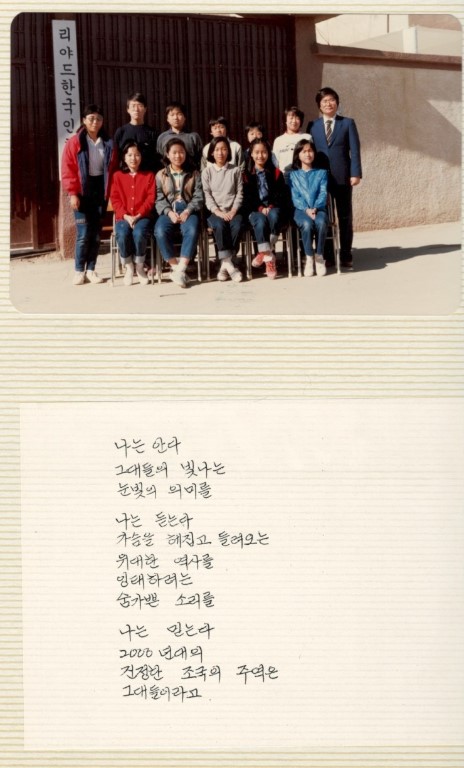 리야드한국인
나는 안다
그대들의 빛나는
눈빛의 의미를
나는 듣는다
가슴을 헤집고 들려오는
위대한 역사를
잉태하려는
숨가쁜 소리를
나는 믿는다
2000년대의
진정한 조국의 주역은
그대들이라고